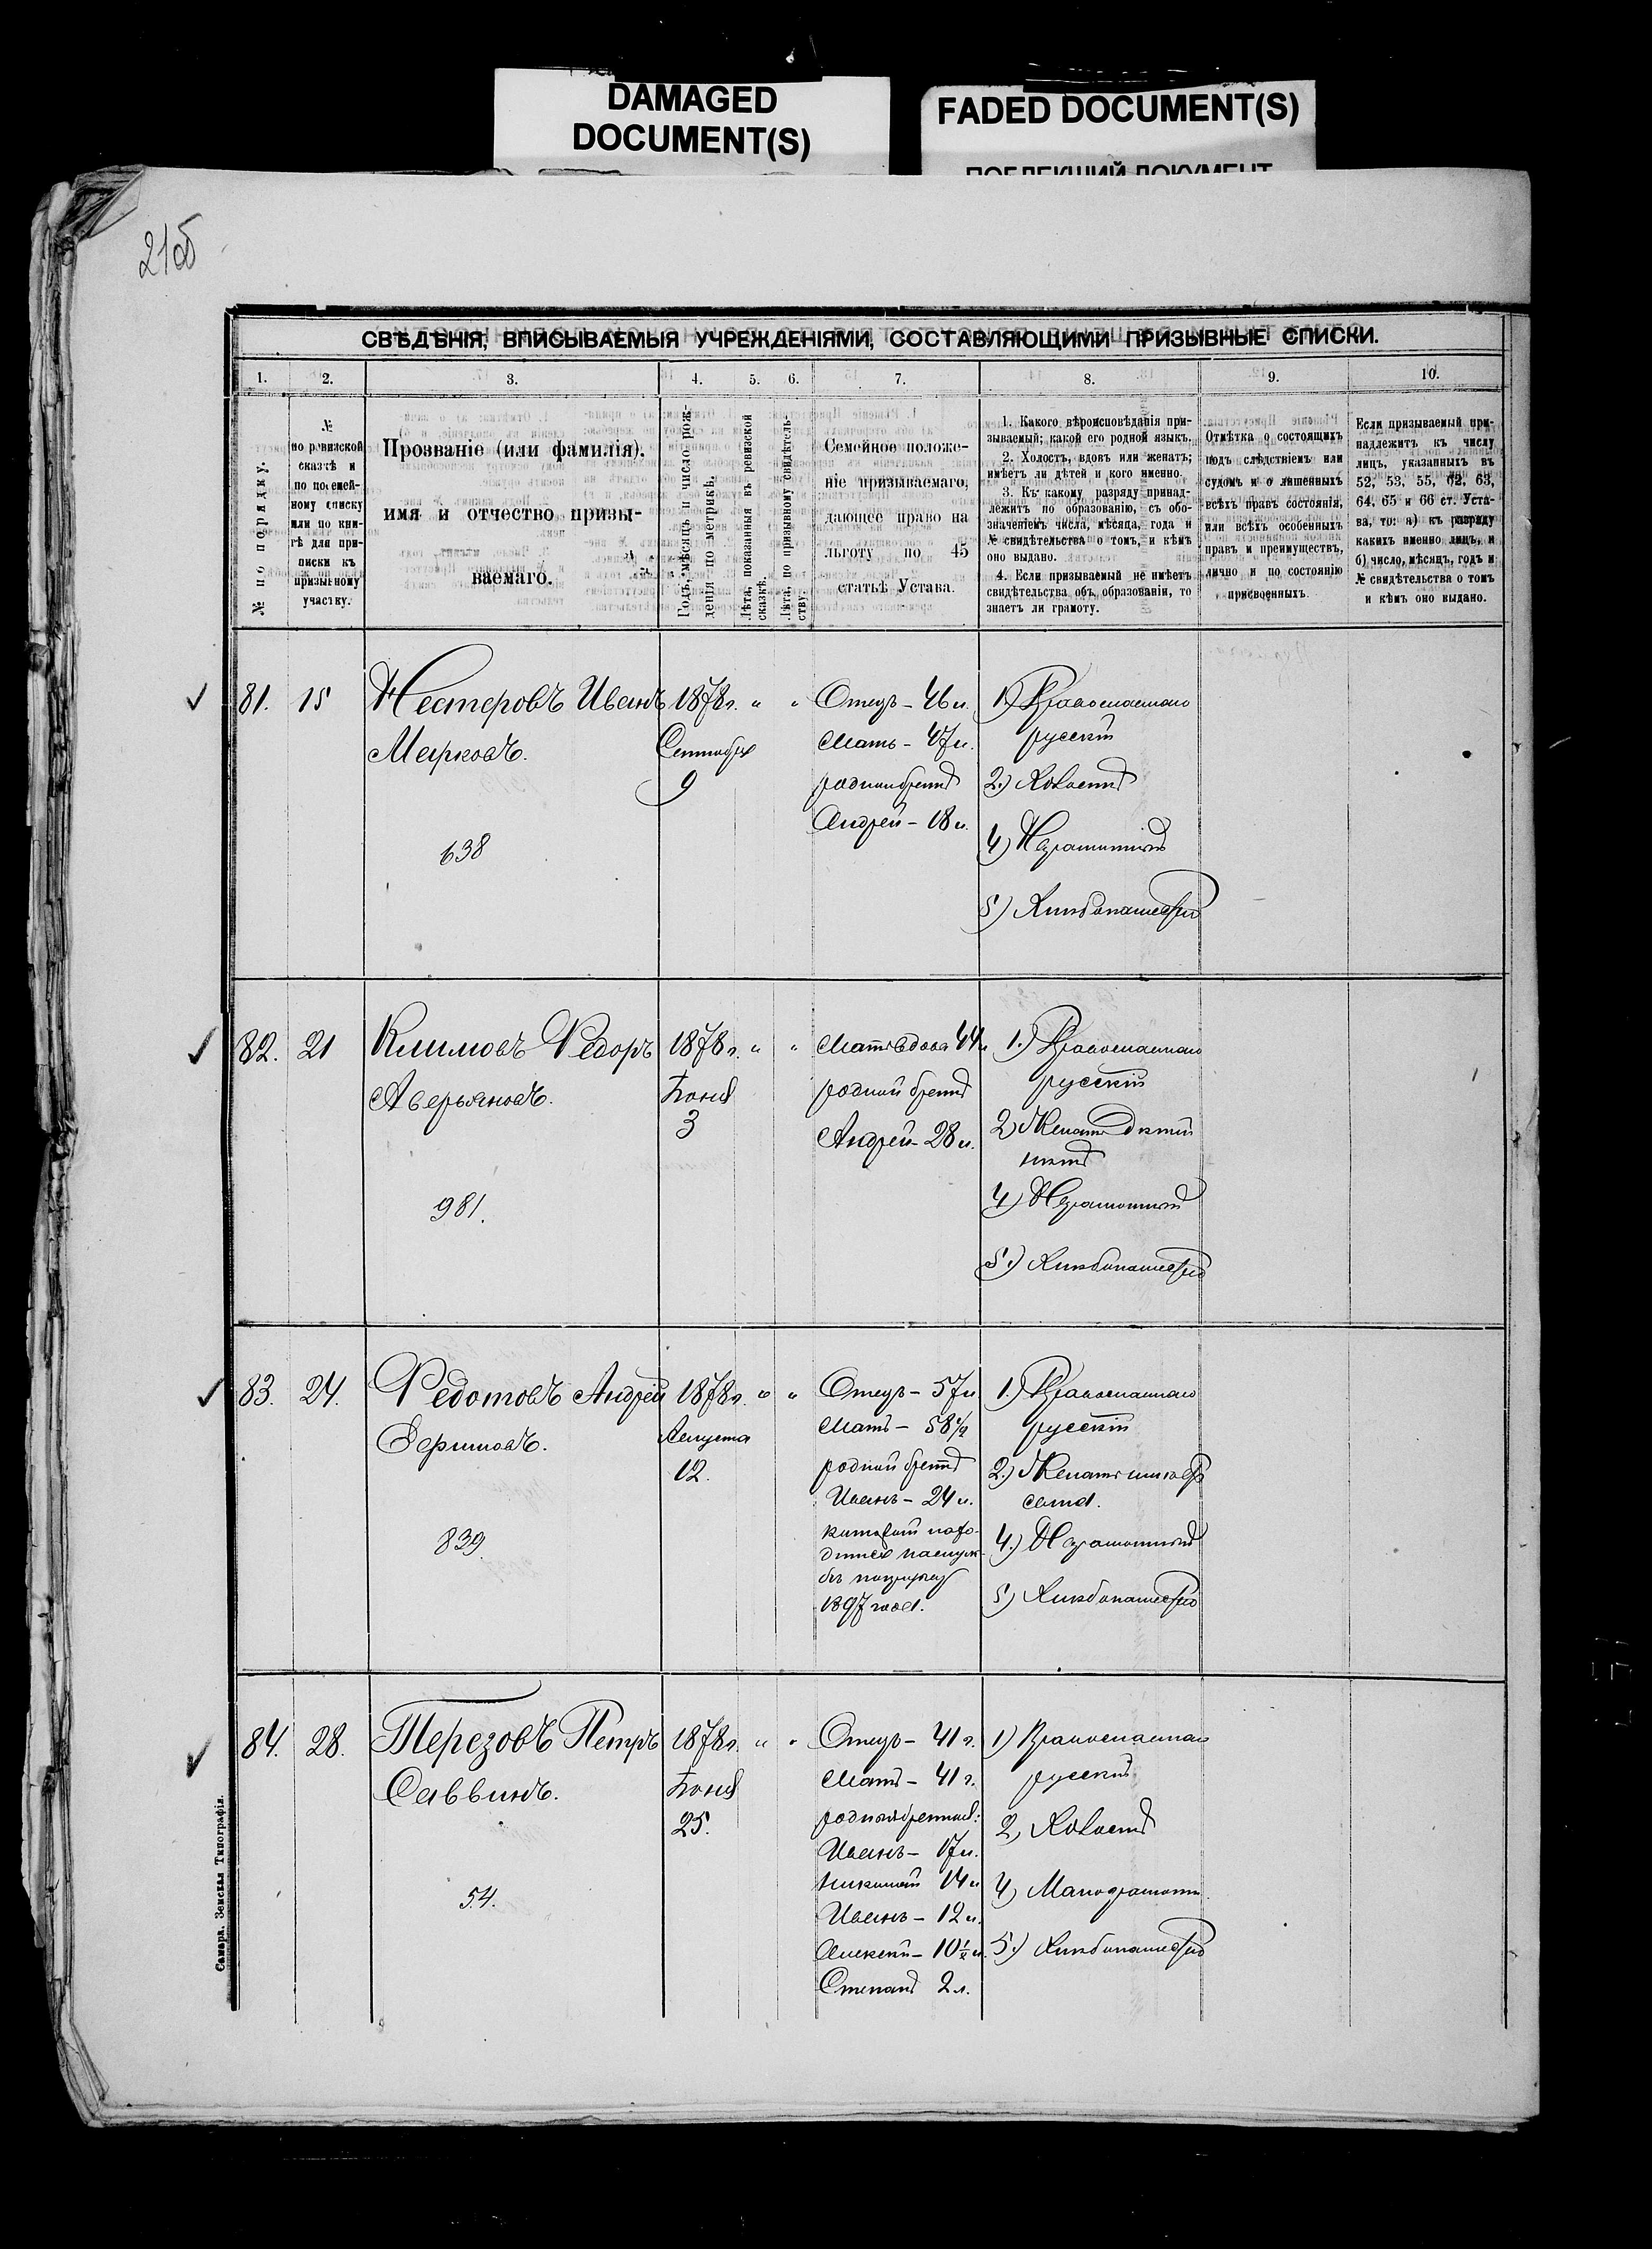 DAMAGED
DOCUMENT(S)
FADED DOCUMENT(S)
ПОБЛЕКШИЙ ДОКУМЕНТ
21об
СВѢДѢНІЯ, ВПИСЫВАЕМЫЯ УЧРЕЖДЕНІЯМИ, СОСТАВЛЯЮЩИМИ ПРИЗЫВНЫЕ СПИСКИ.
1. 2. 3. 4. 5. 6. 7. 8. 9. 10.
№ по порядку.
№
по ревизской
сказкѣ и
по посемей-
ному списку
или по кни-
гѣ для при-
писки къ
призывному
участку.
Прозваніе (или фамилія).
имя и отчество призы-
ваемаго.
Годъ, мѣсяцъ и число рож-
денія по метрикѣ.
Лѣта, показанныя въ ревизской
сказкѣ.
Лѣта, по призывному свидѣтель-
ству.
Семейное положе-
ніе призываемаго,
дающее право на
льготу по 45
статьѣ Устава.
1. Какого вѣроисповѣданія при-
зываемый; какой его родной языкъ.
2. Холостъ, вдовъ или женатъ;
имѣетъ ли дѣтей и кого именно.
3. Къ какому разряду принад-
лежитъ по образованію, съ обо-
значеніемъ числа, мѣсяца, года и
№ свидѣтельства о томъ, и кѣмъ
оно выдано.
4. Если призываемый не имѣетъ
свидѣтельства объ образованіи, то
знаетъ ли грамоту.
Отмѣтка о состоящихъ
подъ слѣдствіемъ или
судомъ и о лишенныхъ
всѣхъ правъ состоянія,
или всѣхъ особенныхъ
правъ и преимуществъ,
лично и по состоянію
присвоенныхъ
Если призываемый при-
надлежитъ къ числу
лицъ, указанныхъ въ
52, 53, 55, 62, 63,
64, 65 и 66 ст. Уста-
ва, то: а) къ разряду
какихъ именно лицъ, и
б) число, мѣсяцъ, годъ и
№ свидѣтельства о томъ
и кѣмъ оно выдано.
81. 15 Нестеровъ Иванъ
Марковъ.
638
1878 г. " "
Сентября
9
Отецъ – 46 л.
Мать – 47 л.
родной братъ
Андрей – 18 л.
1) Православнаго
русскій
2) Холостъ
4) Неграмотный
5) Хлѣбопашество
82. 21 Климовъ Федоръ
Аверьяновъ.
981.
1878 г. " "
Іюня
3
Мать вдова 44 л
родной братъ
Андрей – 28 л.
1.) Православнаго
русскій
2) Женатъ дѣтей
нѣтъ
4) Неграмотный
5.) Хлѣбопашество
83. 24. Федотовъ Андрей
839.
1878 г. " "
Августа
12.
Отецъ – 57 л
Мать – 58 ½
родной братъ
Иванъ – 24 л.
который нахо-
дится
1897 года.
1.) Православнаго
русскій
2.) Женатъ
4.) Неграмотный
5) Хлѣбопашество
84. 28. Терезовъ Петръ
Саввинъ.
54.
1878 г. " "
Іюня
25.
Отецъ – 41 г.
Мать – 41 г.
родные братья:
Иванъ – 17 л.
Николай 14 л
Иванъ – 12 л.
Алексей – 10 ½ л.
Степанъ 2 л.
1) Православнаго
русскій
2) Холостъ
4) Малограмотн.
5.) Хлѣбопашество
Самара. Земская Типографія.